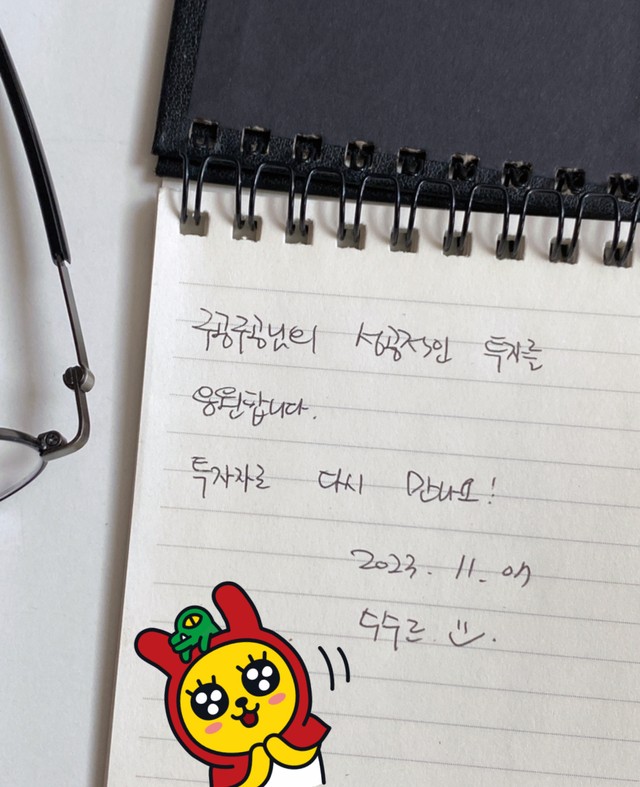 주공주공님의 성공적인 투자를
응원합니다.
투자자로 다시 만나요!
2023. 11. 07
수수르